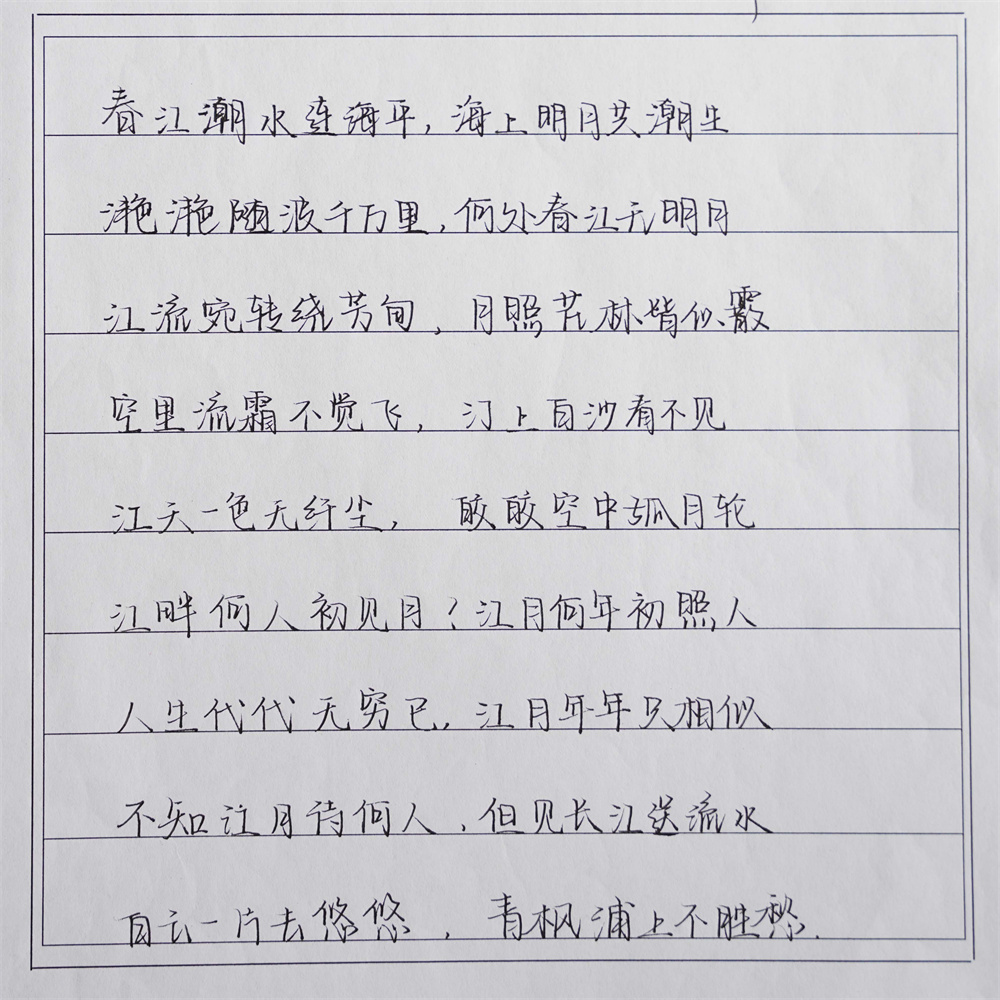 春江潮水连海平,海上明月共潮生
滟滟随波千万里,何处春江无明月
江流宛转绕芳甸,月照花林皆似霰
空里流霜不觉飞,汀上白沙看不见
江天一色无纤尘,皎皎空中孤月轮
江畔何人初见月?江月何年初照人
人生代代无穷已,江月年年只相似
不知江月待何人,但见长江送流水
白云一片去悠悠,青枫浦上不胜愁.